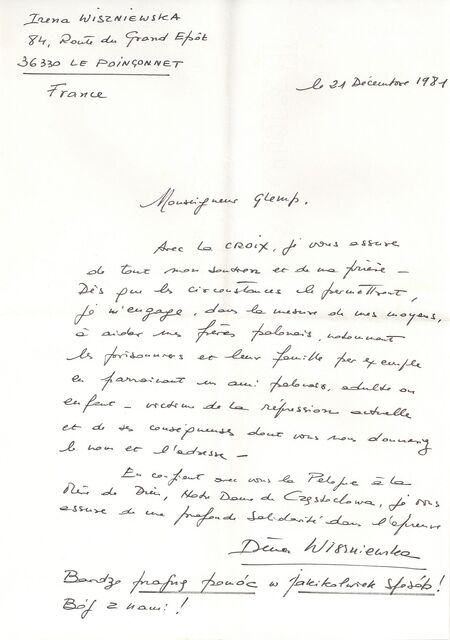 Irena WISZNIEWSKA
84, Route du Grand Epôt
36330 LE POINÇONNET
France
le 21 Décembre 1981
Monseigneur Glemp,
Avec la CROIX, je vous assure
de tout mon soutien et de ma prière –
Dès que les circonstances le permettront,
je m'engage, dans la mesure de mes moyens,
à aider mes frères polonais, notamment
les prisonniers et leur famille par exemple
en parrainant un ami polonais, adulte ou
enfant – victime de la répression actuelle
et de ses conséquences dont vous nous donnerez
le nom et l'adresse –
En confiant avec vous la Pologne à la
Mère de Dieu, Notre Dame de Częstochowa, je vous
assure de ma profonde solidarité dans l'épreuve
Irena WISZNIEWSKA
Bardzo pragnę pomóc w jakikolwiek sposób!
Bóg z nami!